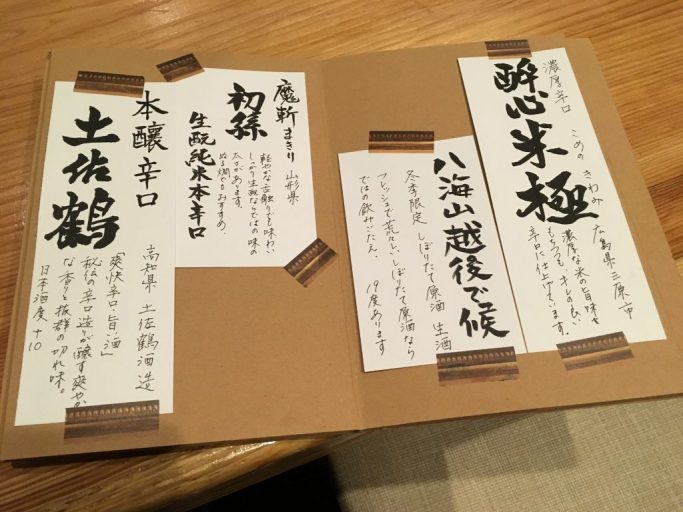 濃厚辛口
酔心米極
こめの きわみ
広島県三原市
濃厚な米の旨味を
もちつつ、キレの良い
辛口に仕上げています。
八海山越後で候
冬季限定 しぼりたて原酒 生酒
フレッシュで荒々しい しぼりたて原酒なら
ではの飲みごたえ。 19度あります
魔斬 まきり 山形県
初孫
生酛純米本辛口
軽やかな舌触りでも味わい
しっかり生酛ならではの味の
太さがあります。
ぬる燗でもおすすめ。
本醸辛口
土佐鶴
高知県 土佐鶴酒造
「爽快辛口旨酒」
秘伝の辛口造りが醸す爽やか
な香りと抜群の切れ味。
日本酒度 +10